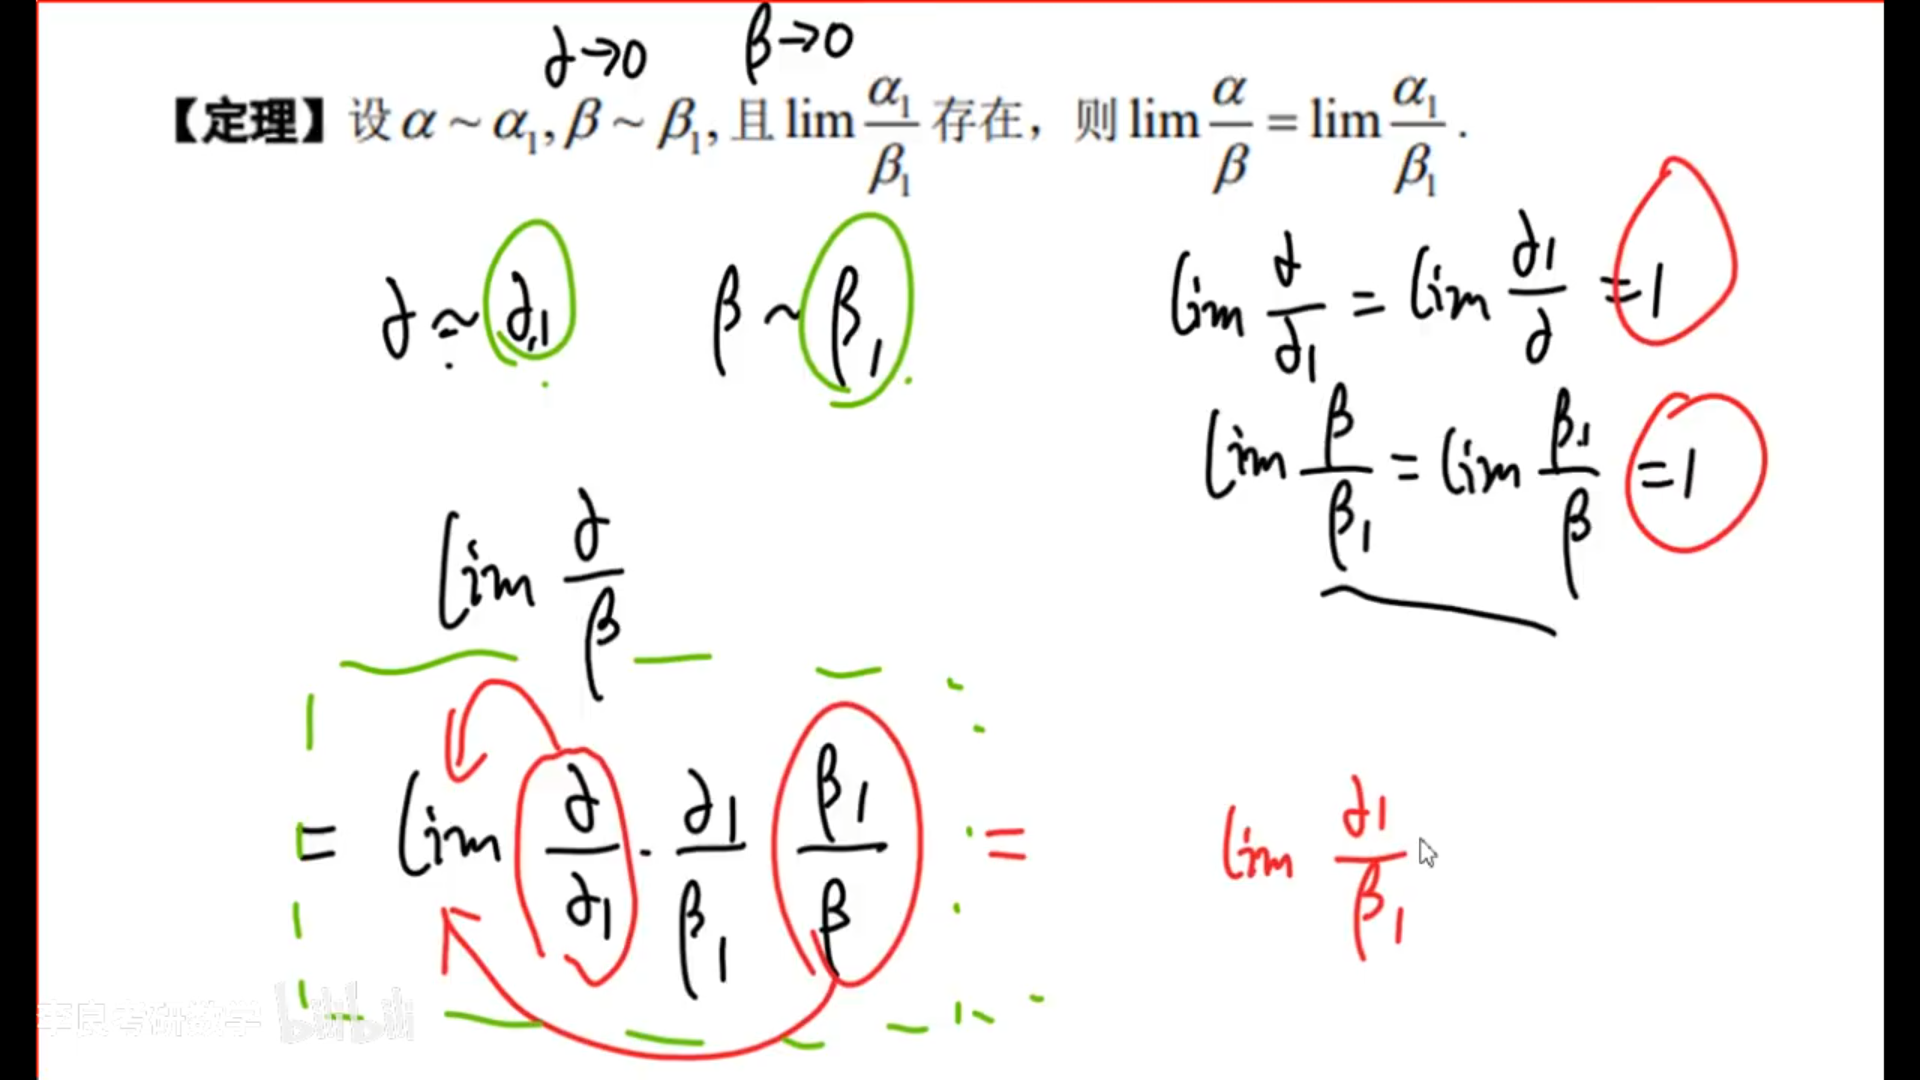 α→0 β→0
【定理】设 α ~ α₁, β ~ β₁, 且 lim α₁/β₁ 存在，则 lim α/β = lim α₁/β₁ .
α ~ α₁ β ~ β₁
lim α/α₁ = lim α₁/α = 1
lim β/β₁ = lim β₁/β = 1
lim α/β
= lim α/α₁ · α₁/β₁ β₁/β = lim α₁/β₁
李良考研数学 bilibili